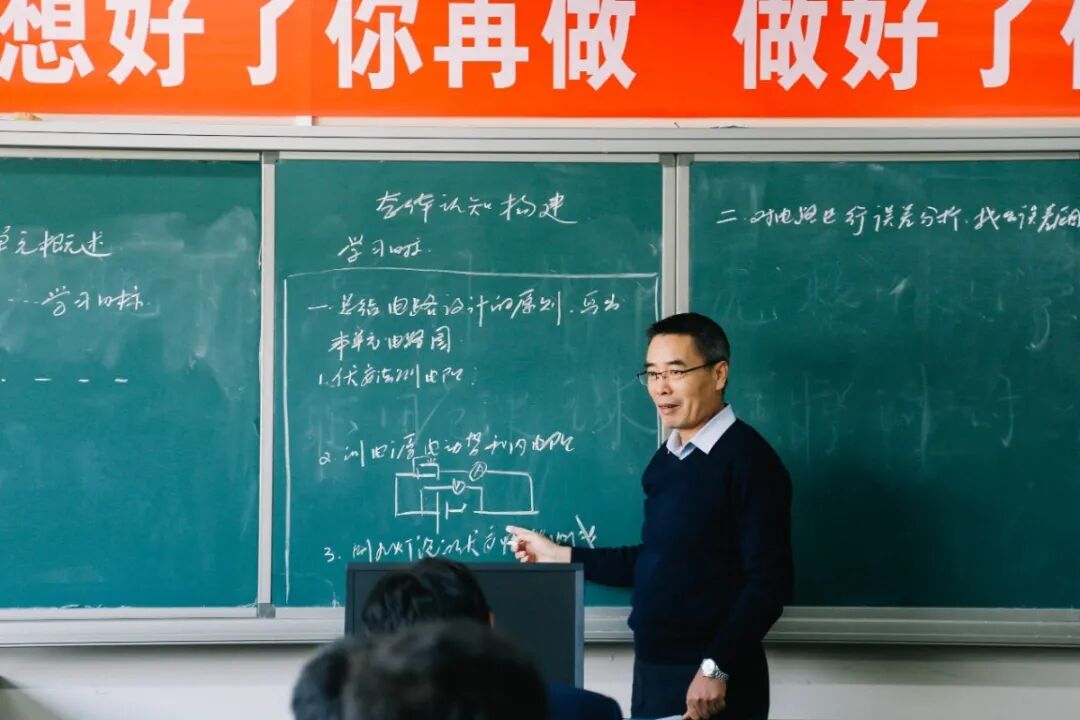 想好了你再做 做好了
单元概述
学习目标
整体认知构建
学习目标
一.总结电路设计的原则,写出
本单元电路图
1.伏安法测电阻
2.测电源电动势和内电阻
A
V
3.
二.对电路进行误差分析,找出误差